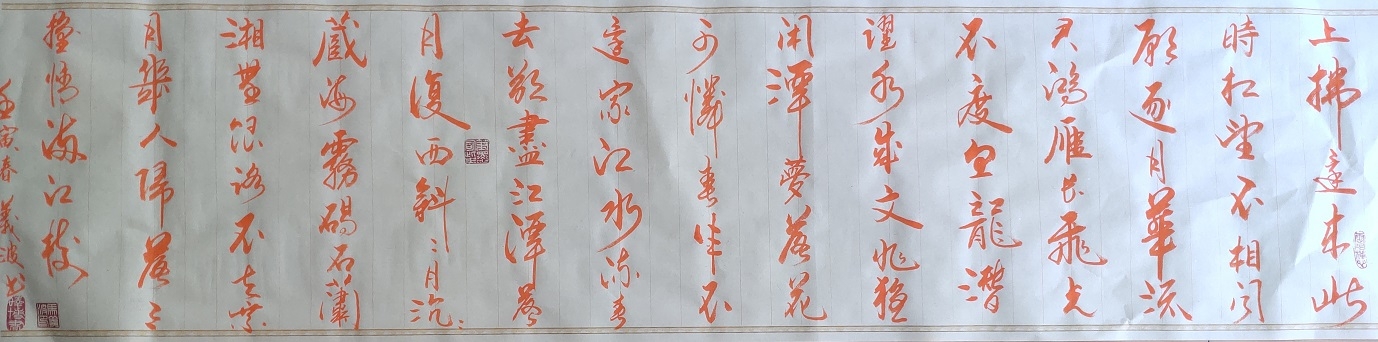 上拂還來此
時相望不相聞
願逐月華流
君鴻雁長飛光
不度魚龍潛
躍水成文昨
閑潭夢落花
可憐春半不
還家江水流春
去欲盡江潭落
月復西斜〻月沉〻
藏海霧碣石瀟
湘無限路不知乘
月幾人歸落〻
搖情滿江樹
壬寅春 義波書